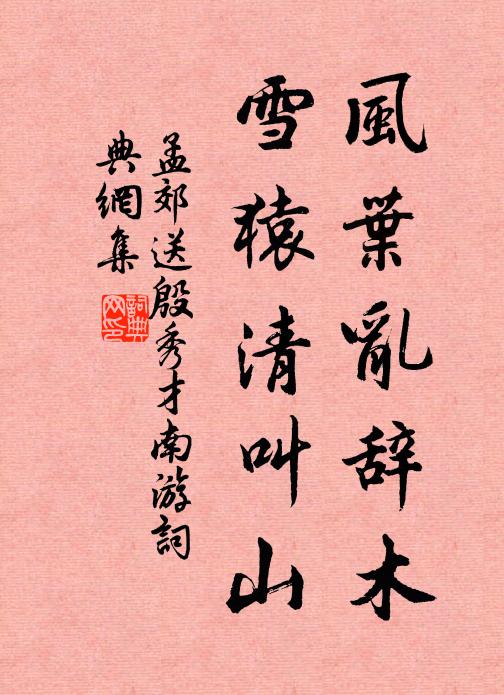 風葉亂辞木
雪猿清叫山
孟郊送殷秀才南游詞
典網集
詞典网印